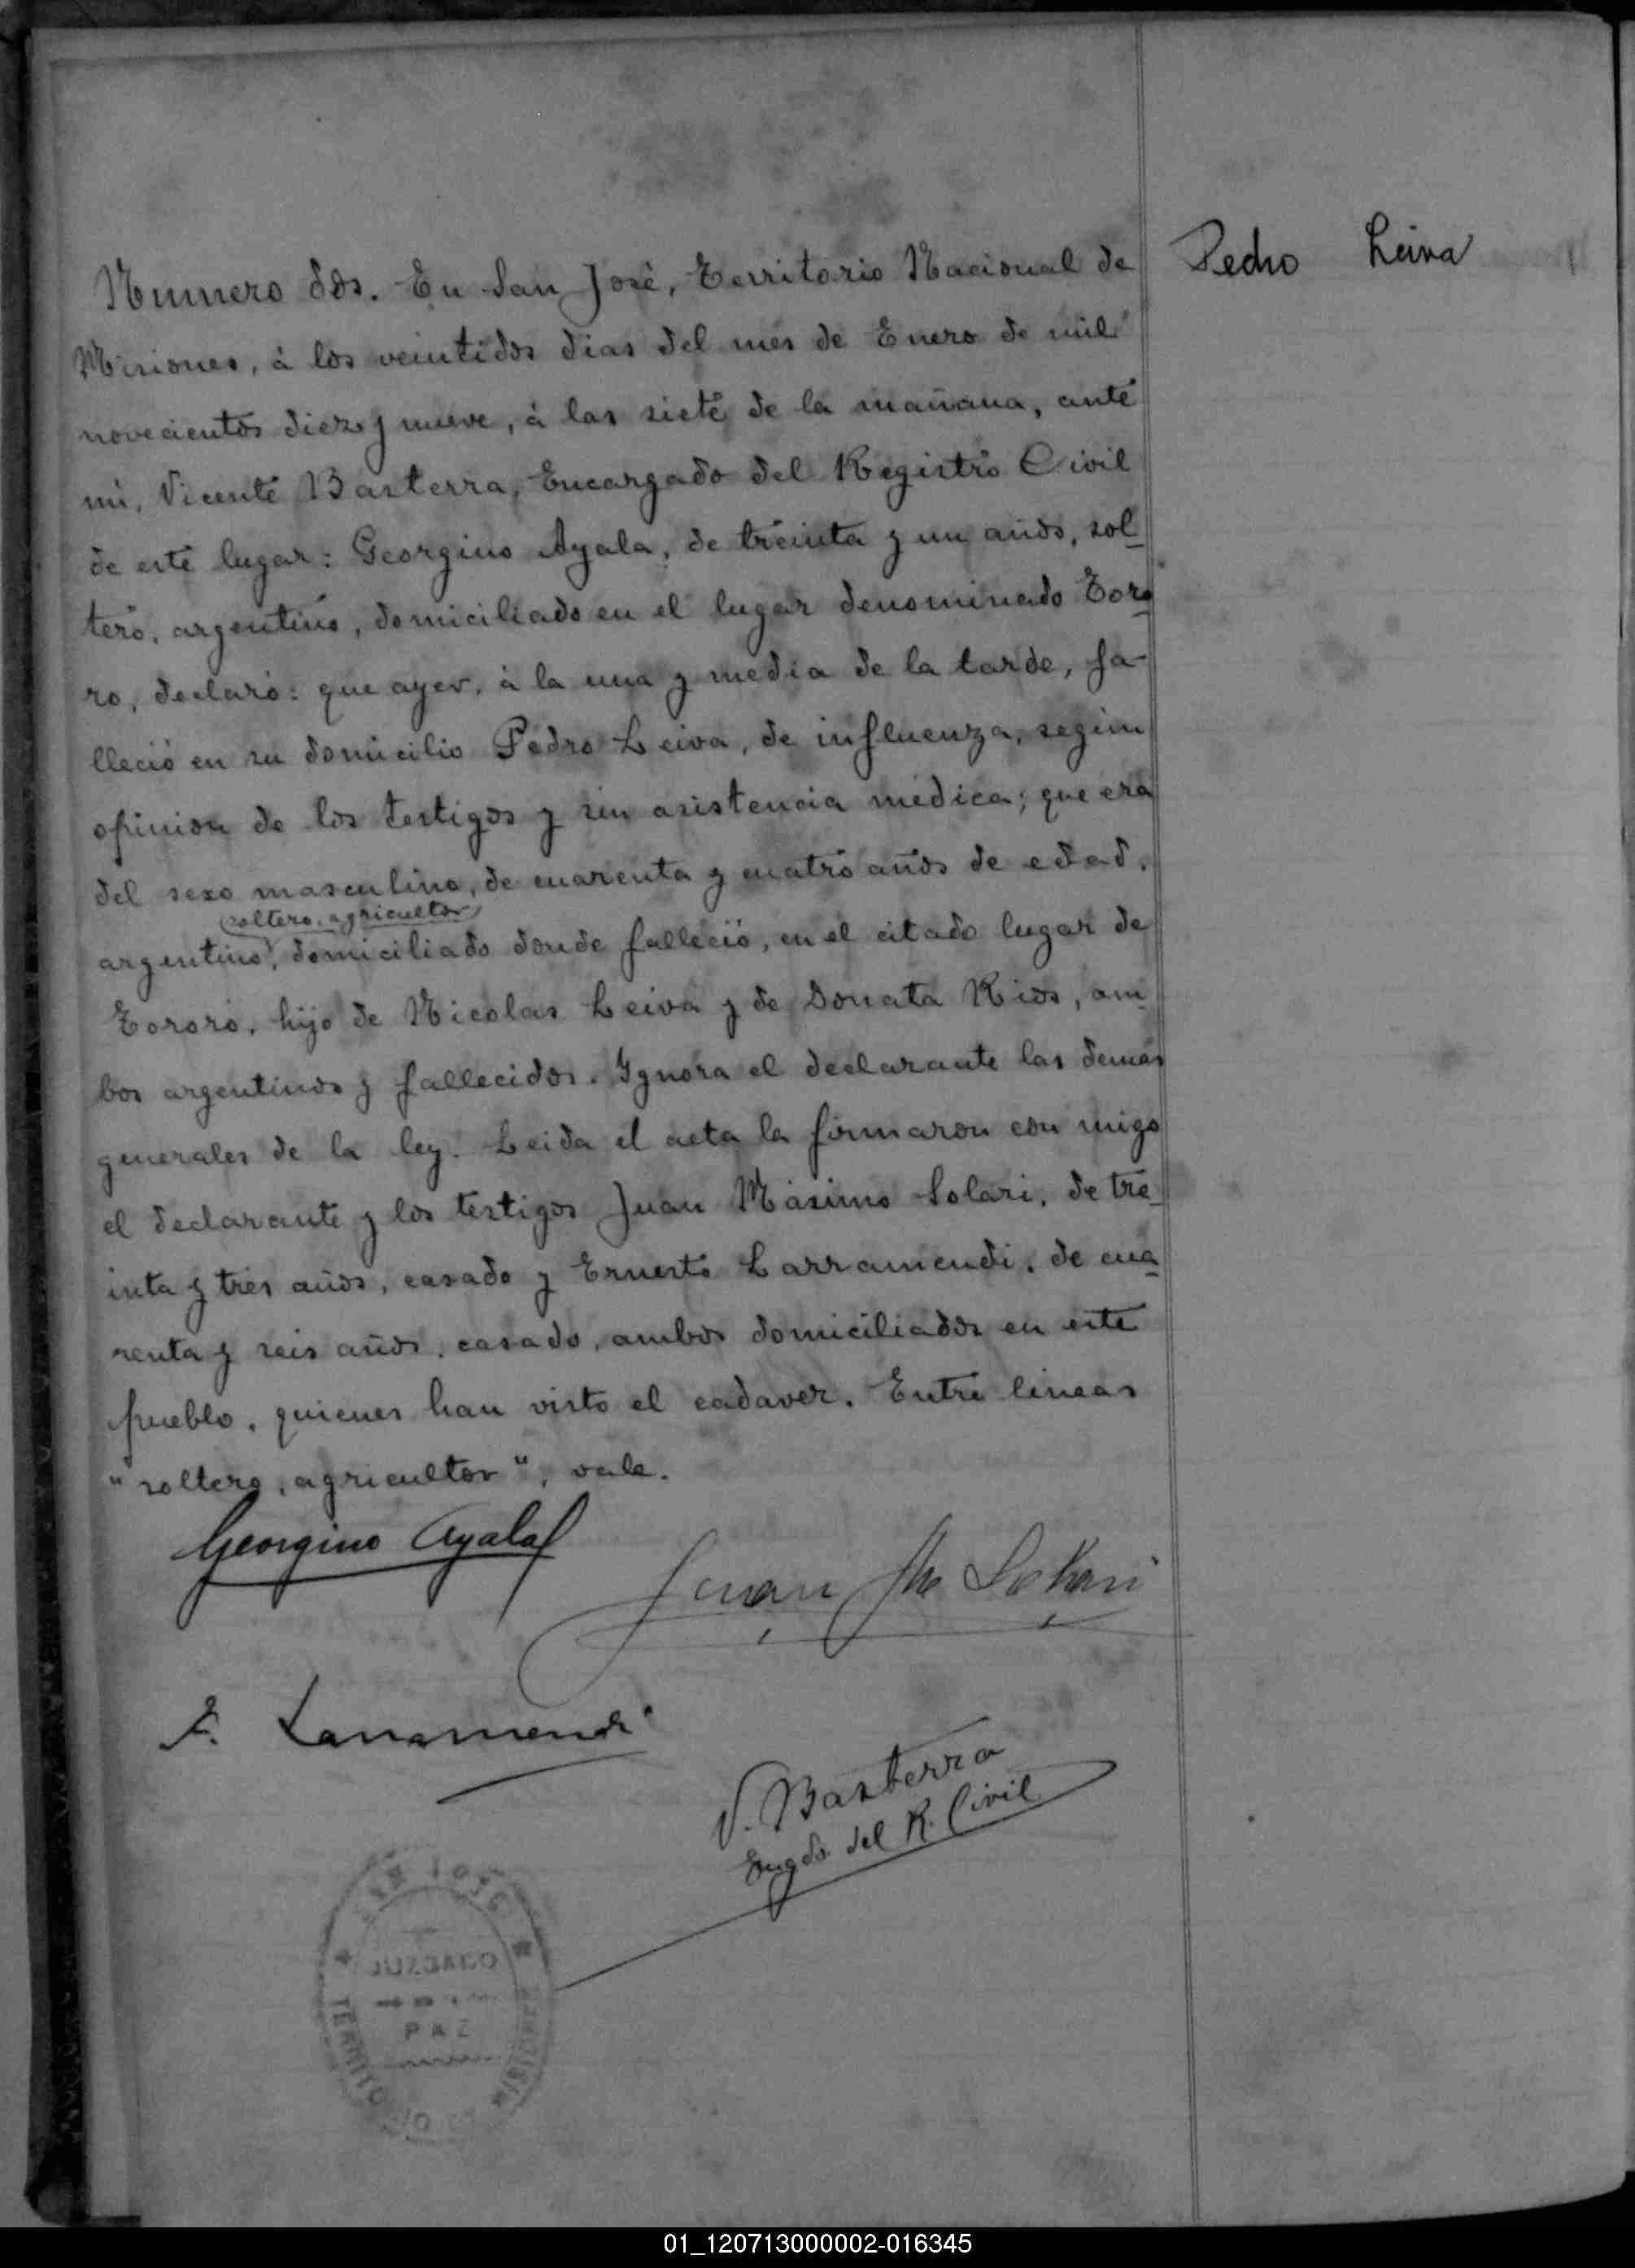 Numero dos. En San José, Territorio Nacional de
Pedro Leiva
Misiones, á los veintidos dias del mes de Enero de mil
novecientos diez y nueve, á las siete de la mañana, ante
mi, Vicente Basterra, Encargado del Registro Civil
de este lugar: Georgino Ayala, de treinta y un años, sol-
tero, argentino, domiciliado en el lugar denominado Toro-
ro, declaró: que ayer, á la una y media de la tarde, fa-
lleció en su domicilio Pedro Leiva, de influenza, según
opinion de los testigos y sin asistencia médica; que era
del sexo masculino, de cuarenta y cuatro años de edad,
soltero, agricultor
argentino, domiciliado donde falleció, en el citado lugar de
Tororo, hijo de Nicolas Leiva y de Donata Rios, am-
bos argentinos y fallecidos. Ignora el declarante las demás
generales de la ley. Leida el acta la firmaron con migo
el declarante y los testigos Juan Máximo Solari, de tre-
inta y tres años, casado y Ernesto Larramendi, de cua-
renta y seis años, casado, ambos domiciliados en este
pueblo, quienes han visto el cadaver. Entre lineas
"soltero, agricultor", vale.
Georgino Ayala
Juan Mo Solari
E. Larramendi
V. Basterra
Engdo. del R. Civil
SAN JOSE
JUZGADO
DE
PAZ
TERRITORIO MISIONES
01_120713000002-016345